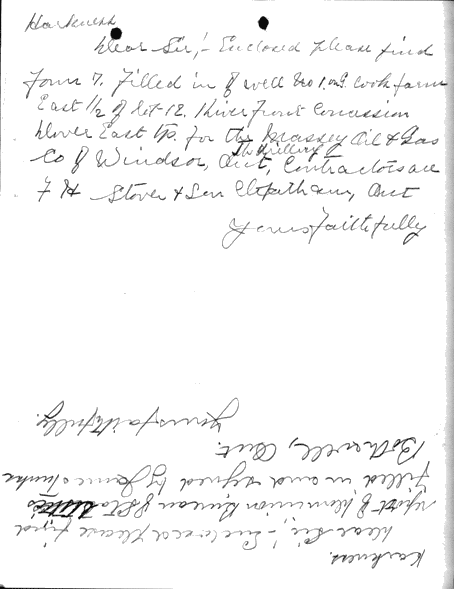 Harkness
Dear Sir,- Enclosed please find
Form 7. Filled in of well No 1, on G. Cook farm
East 1/2 of Lot-12, River Front Concession
Dover East Tp. for the Massey Oil & Gas
The drilling
Co of Windsor, Ont, Contractors are
F H Stover & Son Chatham, Ont
Yours faithfully
Harkness.
Dear Sir,- Enclosed please find
report of Dominion Bureau of Statistics
Filled in and signed by James
Bothwell, Ont.
Yours faithfully.